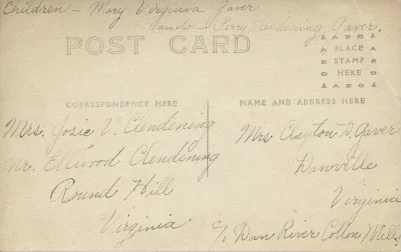 Children - Mary Virginia Gaver
and Perry Clendening Gaver.
POST CARD
PLACE
STAMP
HERE
CORRESPONDENCE HERE
Mrs. Josie V. Clendening
Mr. Ellwood Clendening
Round Hill
Virginia
NAME AND ADDRESS HERE
Mrs Clayton D. Gaver
Danville
Virginia
c/o Dan River Cotton Mills